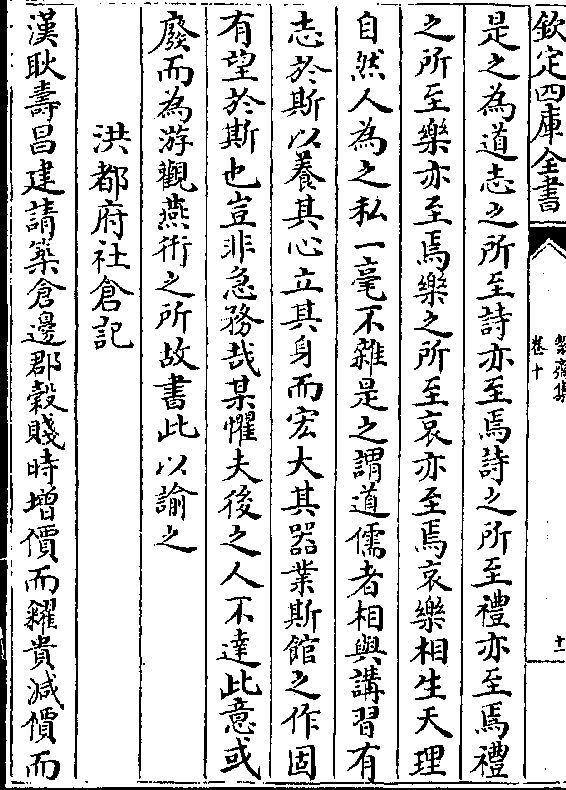 欽定四庫全書
絜齋集
卷十
十一
是之為道志之所至詩亦至焉詩之所至禮亦至焉禮
之所至樂亦至焉樂之所至哀亦至焉哀樂相生天理
自然人為之私一毫不雜是之謂道儒者相與講習有
志於斯以養其心立其身而宏大其器業斯館之作固
有望於斯也豈非急務哉某懼夫後之人不達此意或
廢而為游觀燕衎之所故書此以諭之
洪都府社倉記
漢耿壽昌建請築倉邊郡穀賤時增價而糴貴減價而